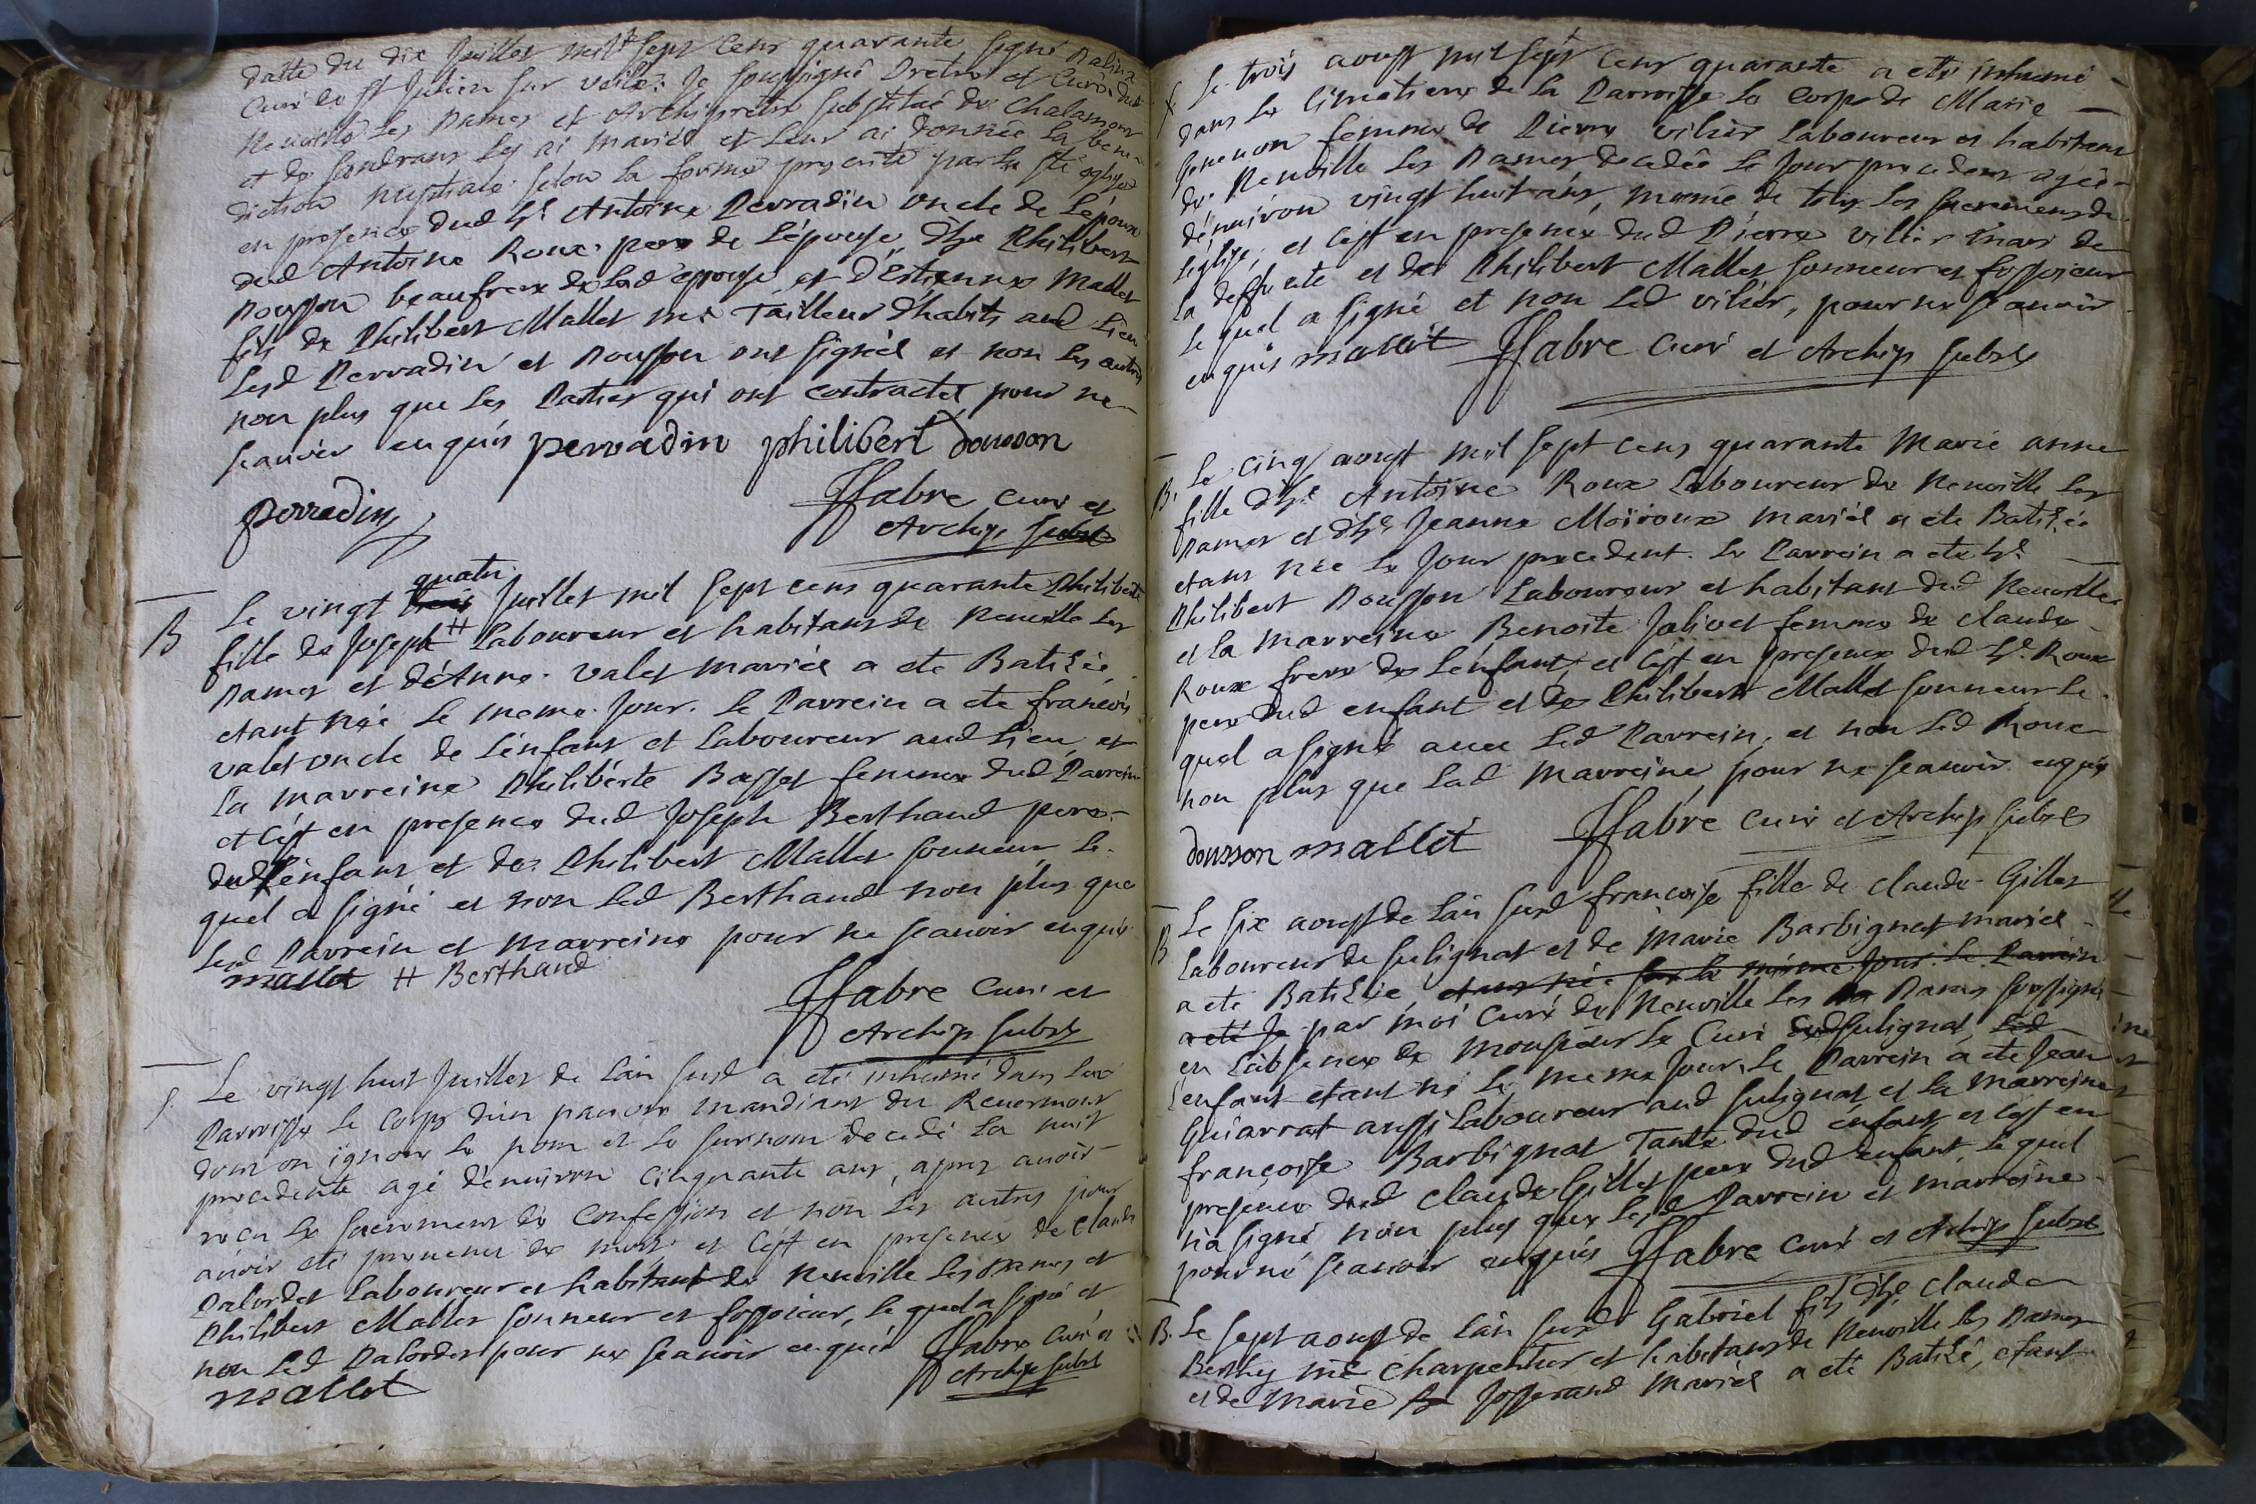 datte du dix Juillet mil sept cens quarante signé
Curé de St Julien sur veille. Je soussigné Pretre et Curé dud
Neuville les Dames et Archipretre substitué de Chalamont
et de Sandrans les ai mariés et leur ai donnée la bene-
diction nuptiale selon la forme prescrite par la ste eglise
en presence dud hle Antoine Perradin oncle de l'époux
dud Antoine Roux pere de l'épouse, d'hle Philibert
Dousson beaufrere de lad épouse et d'Estienne Mallet
fils de Philibert Mallet me Tailleur d'habits aud lieu
lesd Perradin et Dousson ont signés et non les autres
non plus que les Parties qui ont contractés pour ne
scauoir enquis perradin philibert dousson
perradin
FFabre curé et
Archip. subst
B
quatre
Le vingt trois Juillet mil sept cens quarante Philiberte
fille de Joseph # Laboureur et habitant de Neuville les
Dames et d'Anne Valet mariés a ete Batisée
etant née le meme Jour. Le Parrein a ete francois
valet oncle de l'enfant et Laboureur aud lieu et
la marreine Philiberte Basset femme dud Parrein
et c'est en presence dud Joseph Berthaud pere
dud l'enfant et de Philibert Mallet sonneur le-
quel a signé et non led Berthaud non plus que
lesd Parrein et marreine pour ne scauoir enquis
mallet # Berthaud
FFabre curé et
Archip subst
S.
Le vingt huit Juillet de l'an susd a eté inhumé dans la
Parroisse le corps d'un pauvre mandiant du Reuermont
dont on ignore le nom et le surnom decedé la nuit
precedente agé d'enuiron cinquante ans, apres auoir
recu le sacrement de Confession et non les autres pour
auoir eté preuenu de mort et c'est en presence de Claude
Palordet Laboureur et habitant de Neuville les Dames et
Philibert Mallet sonneur et fossoieur, le quel a signé et
non led Palordet pour ne scauoir enquis FFabre Curé et
mallet Archip subst
S.
Le trois aoust mil sept cens quarante a eté inhumé
dans le cimetiere de la Parroisse le corps de Marie
femme de Pierre vilier Laboureur et habitant
de Neuville les Dames decedée le Jour precedent agée
d'enuiron vingt huit ans, munie de tous les sacremens de
l'eglise, et c'est en presence dud Pierre vilier mari de
la deffunte et de Philibert Mallet sonneur et fossoieur
le quel a signé et non led vilier, pour ne scauoir
enquis mallet FFabre Curé et Archip subst
B.
Le cinq aoust mil sept cens quarante Marie anne
fille d'hle Antoine Roux Laboureur de Neuville les
Dames et d'hle Jeanne Moiroux mariés a ete Batisée
etant née le Jour precedent. Le Parrein a ete hle
Philibert Dousson Laboureur et habitant dud Neuville
et la marreine Benoite Jolivet femme de claude
Roux frere de l'enfant, et c'est en presence dud hle Roux
pere dud enfant et de Philibert Mallet sonneur le-
quel a signé auec led Parrein, et non led Roux
non plus que lad marreine pour ne scauoir enquis
dousson mallet FFabre Curé et Archip subst
B
Le six aoust de l'an susd francoise fille de claude Gillet
Laboureur de sulignat et de marie Barbignat mariés
a eté Batisée, etant née le meme Jour. Le Parrein
a eté Je par moi Curé de Neuville les Dames soussigné
en l'absence de monsieur le Curé dud sulignat led
l'enfant etant né le meme Jour, le Parrein a ete Jean
Guiarrat aussi Laboureur aud sulignat et la marreine
françoise Barbignat Tante dud enfant et c'est en
presence dud claude Gillet pere dud enfant, le quel
n'a signé non plus que lesd Parrein et marreine
pour ne scauoir enquis FFabre curé et Archip subst
B.
Le sept aoust de l'an susd Gabriel fils d'hle claude
Berthy me charpentier et habitant de Neuville les Dames
et de marie Josserand mariés a eté Batisé, etant